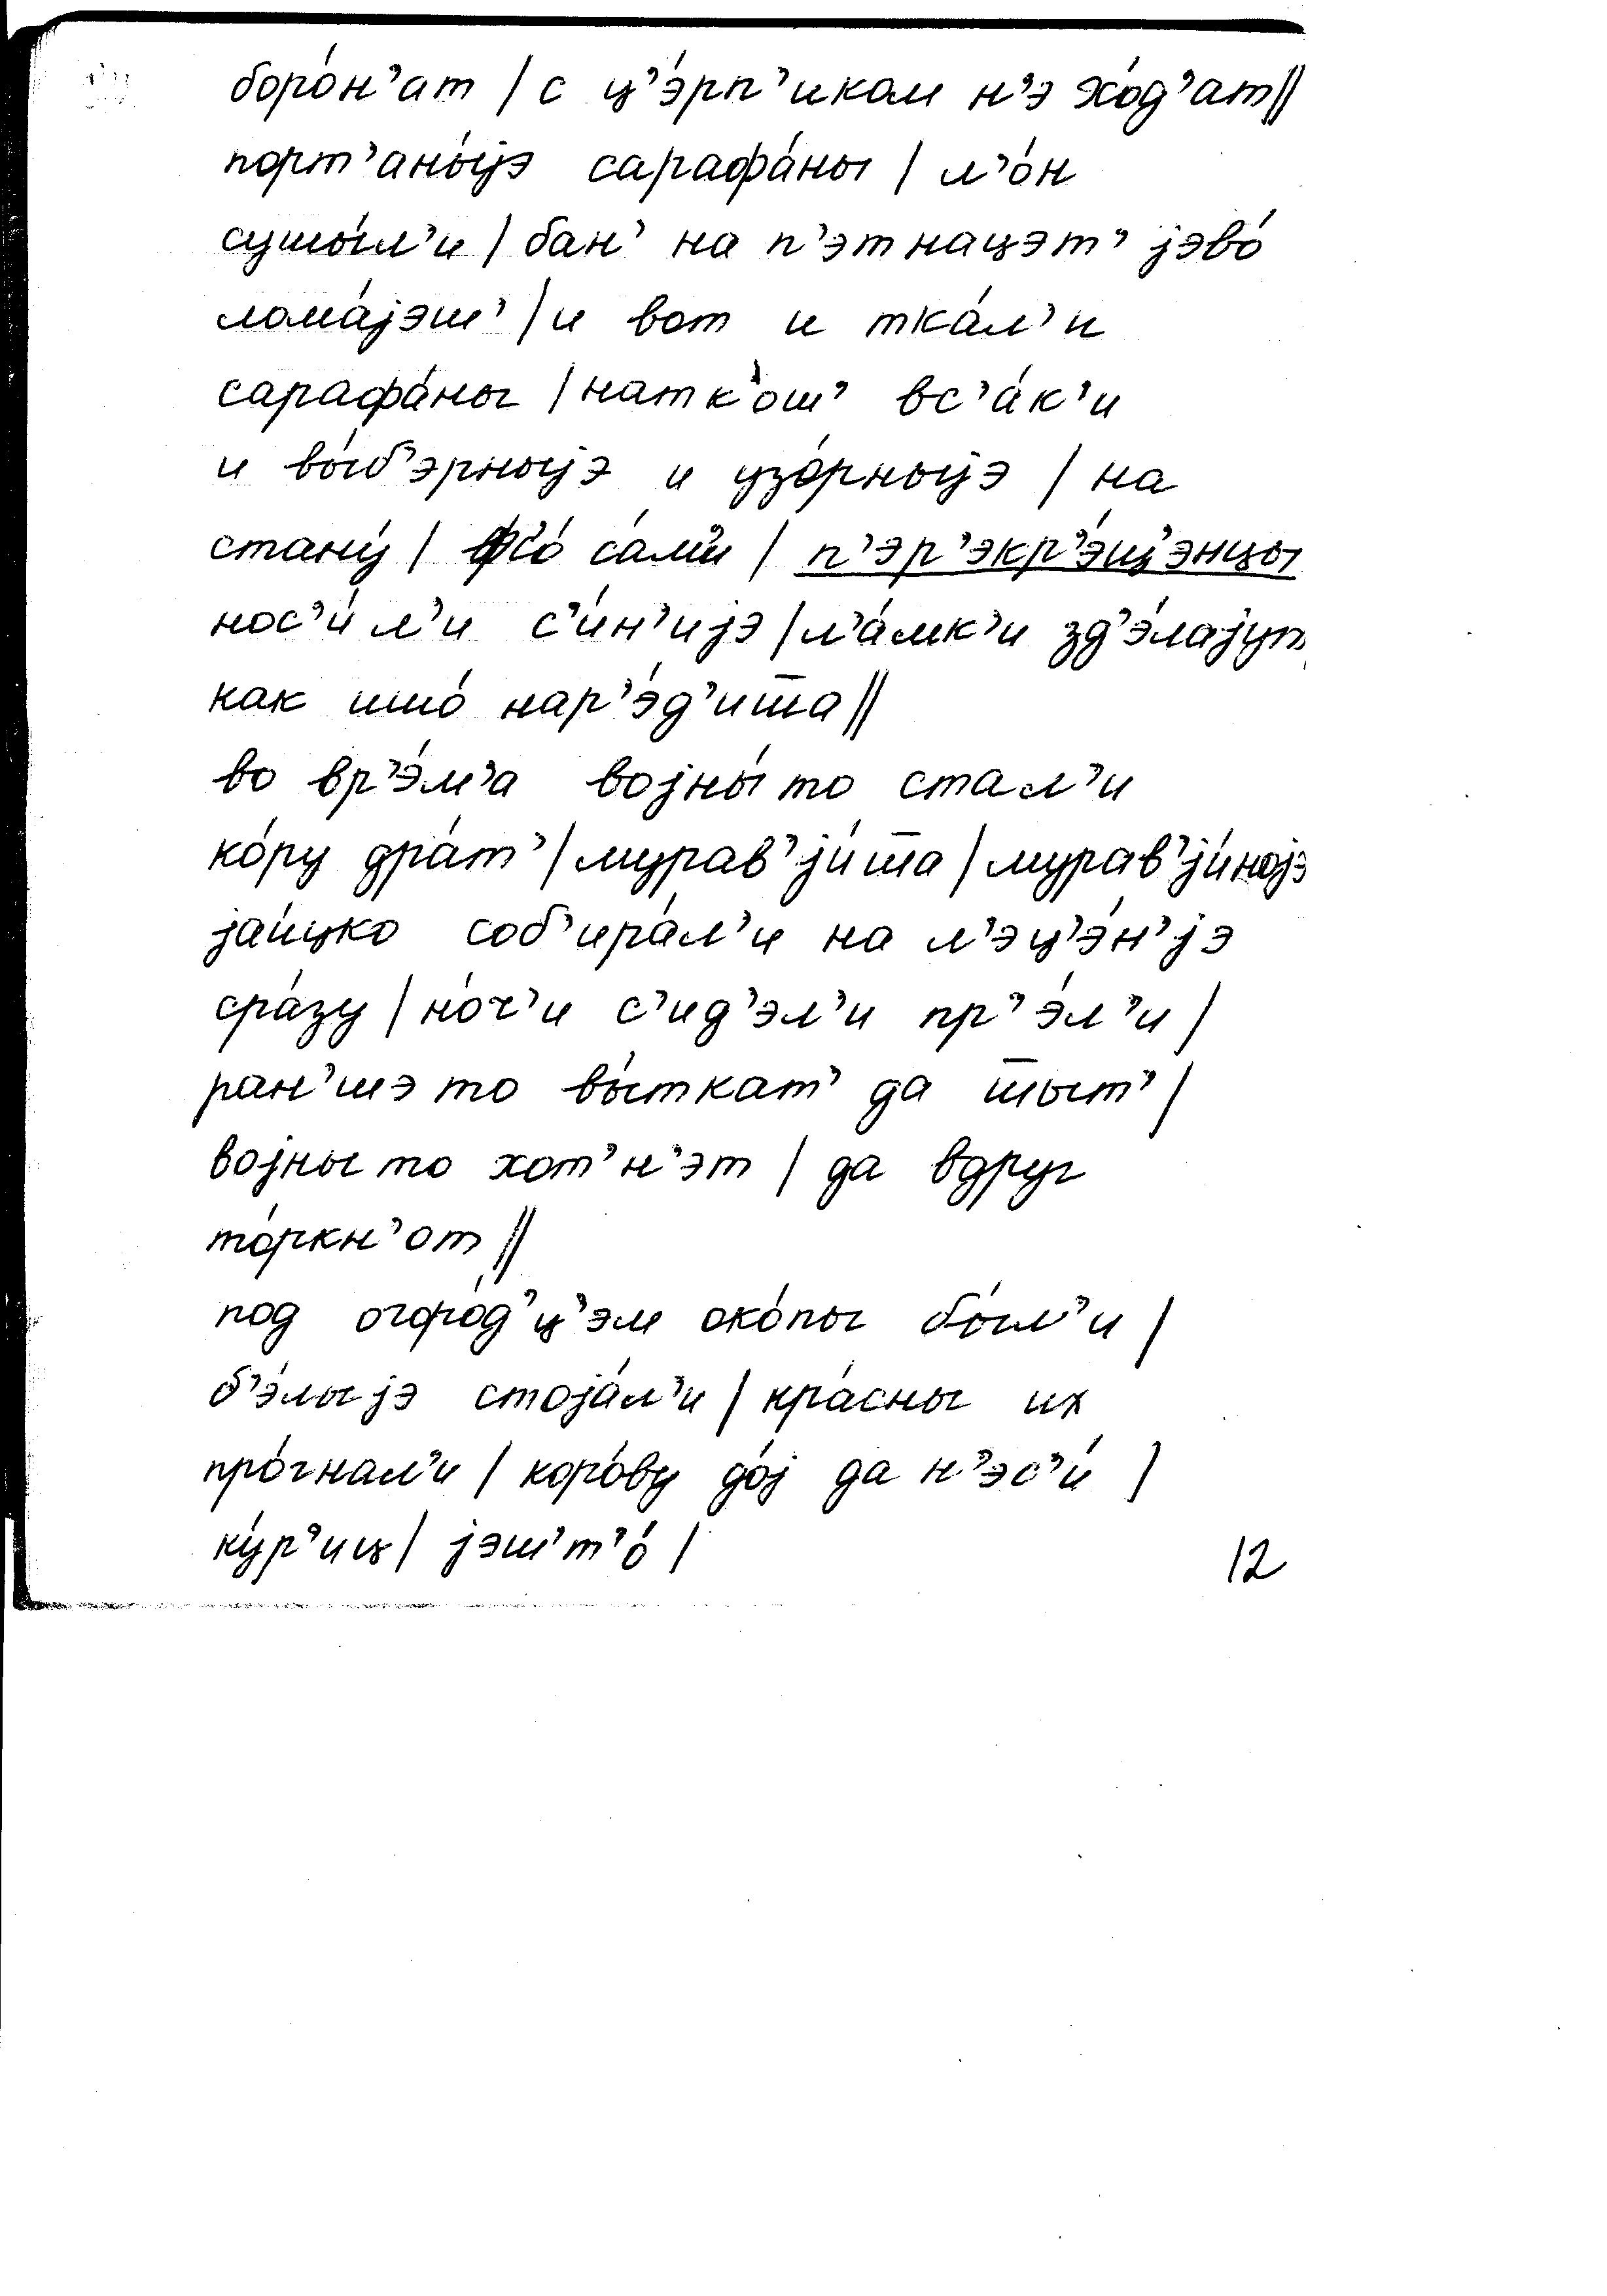 боро́н’ат | с ц’э́рп’иком н’э хо́д’ат ||
порт’аны́јэ сарафа́ны | л’о́н
сушы́л’и | бан’ на п’этнацэт’ јэво́
лома́јэш’ | и вот и тка́л’и
сарафа́ны | натк’ош’ вс’а́к’и
и вы́б’эрныјэ и узо́рныјэ | на
стану́ | са́м’и | п’эр’экр’э́щ’энцы
нос’и́л’и с’и́н’ијэ | л’а́мк’и зд’э́лајут
как што́ нар’э́д’ит̅а ||
во вр’э́м’а војны́то стал’и
ко́ру дра́т’ | мурав’ји́т̅а | мурав’ји́нојэ
јаи́цко соб’ира́л’и на л’эц’э́н’јэ
сра́зу | но́ч’и с’ид’эл’и пр’э́л’и |
ран’шэ то вы́ткат’ да т̅ыт’ |
војны то хот’н’эт | да вдруг
то́ркн’от ||
под огоро́д’ц’эм око́пы бы́л’и |
б’э́лыјэ стоја́л’и | кра́сны их
про́гнал’и | коро́ву до́ј да н’эс’и́ |
ку́р’иц | јэш’т’о́ |
12